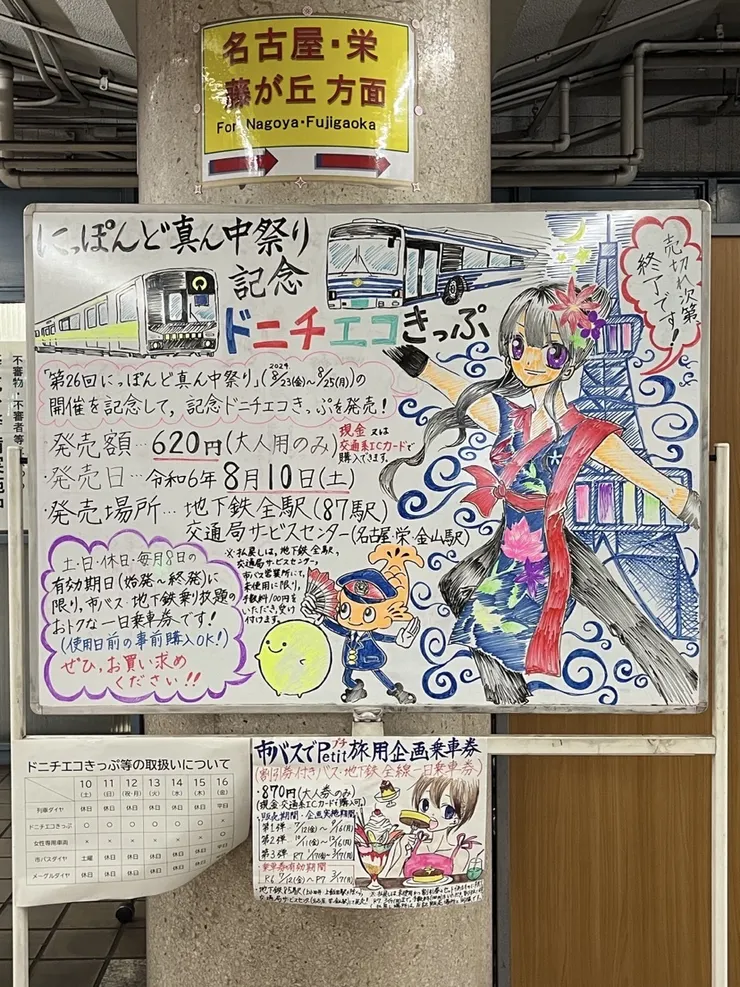 名古屋・栄
藤が丘 方面
For Nagoya・Fujigaoka
にっぽんど真ん中祭り
記念
ドニチエコきっぷ
売切れ次第、
終了です!
「第26回にっぽんど真ん中祭り」(2024 8/23(金)~8/25(月))の
開催を記念して、記念ドニチエコきっぷを発売!
発売額…620円(大人用のみ)
現金又は
交通系ICカードで
購入できます。
発売日…令和6年8月10日(土)
発売場所…地下鉄全駅(87駅)
交通局サービスセンター(名古屋・栄・金山駅)
※払戻しは、地下鉄全駅、
交通局サービスセンター、
市バス営業所にて、
未使用に限り、
手数料100円を
いただき、受け
付けます。
土・日・休日・毎月8日の
有効期日(始発~終発)に
限り、市バス・地下鉄乗り放題の
おトクな一日乗車券です!
(使用日前の事前購入OK!)
ぜひ、お買い求め
ください!!
不審物・不審者等
ドニチエコきっぷ等の取扱いについて
10(土) 11(日) 12(月) 13(火) 14(水) 15(木) 16(金)
列車ダイヤ 休日 休日 休日 休日 休日 休日 平日
ドニチエコきっぷ ○ ○ ○ × × × ×
女性専用車両
市バスダイヤ 土曜 休日 休日 休日 休日 休日 平日
メーグルダイヤ
市バスでPetitプチ旅用企画乗車券
(割引券付きバス・地下鉄全線一日乗車券)
870円(大人券のみ)
(現金・交通系ICカードで購入可。)
販売期間・企画実施期間
第1弾
第2弾
第3弾
乗車券の有効期間